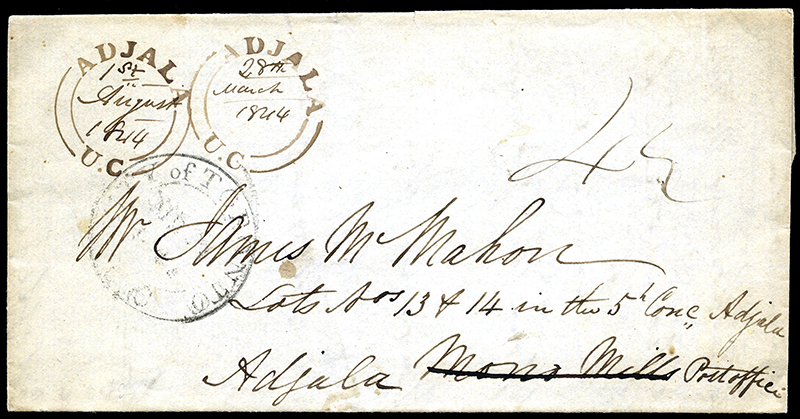 ADJALA
1st
August
1844
U.C
ADJALA
28th
March
1844
U.C
of
4½
Mr James McMahon
Lots Nos 13 & 14 in the 5th Conc, Adjala
Adjala Mono Mills Postoffice